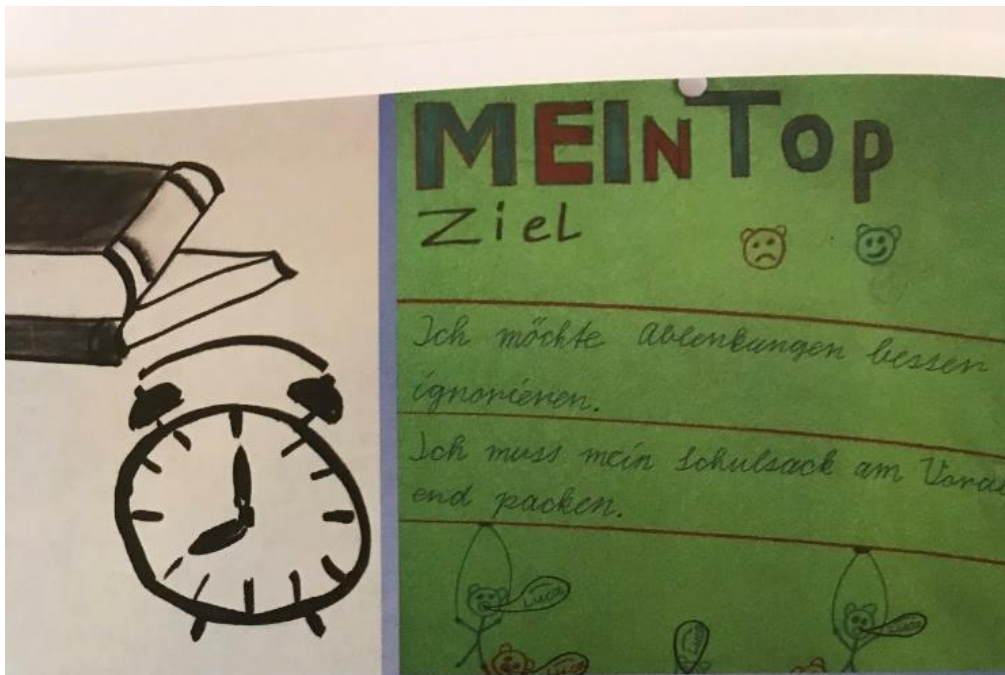 MEIN TOP
Ziel
Ich möchte Ablenkungen besser
ignorieren.
Ich muss mein Schulsack am Vora
end packen.
Luca